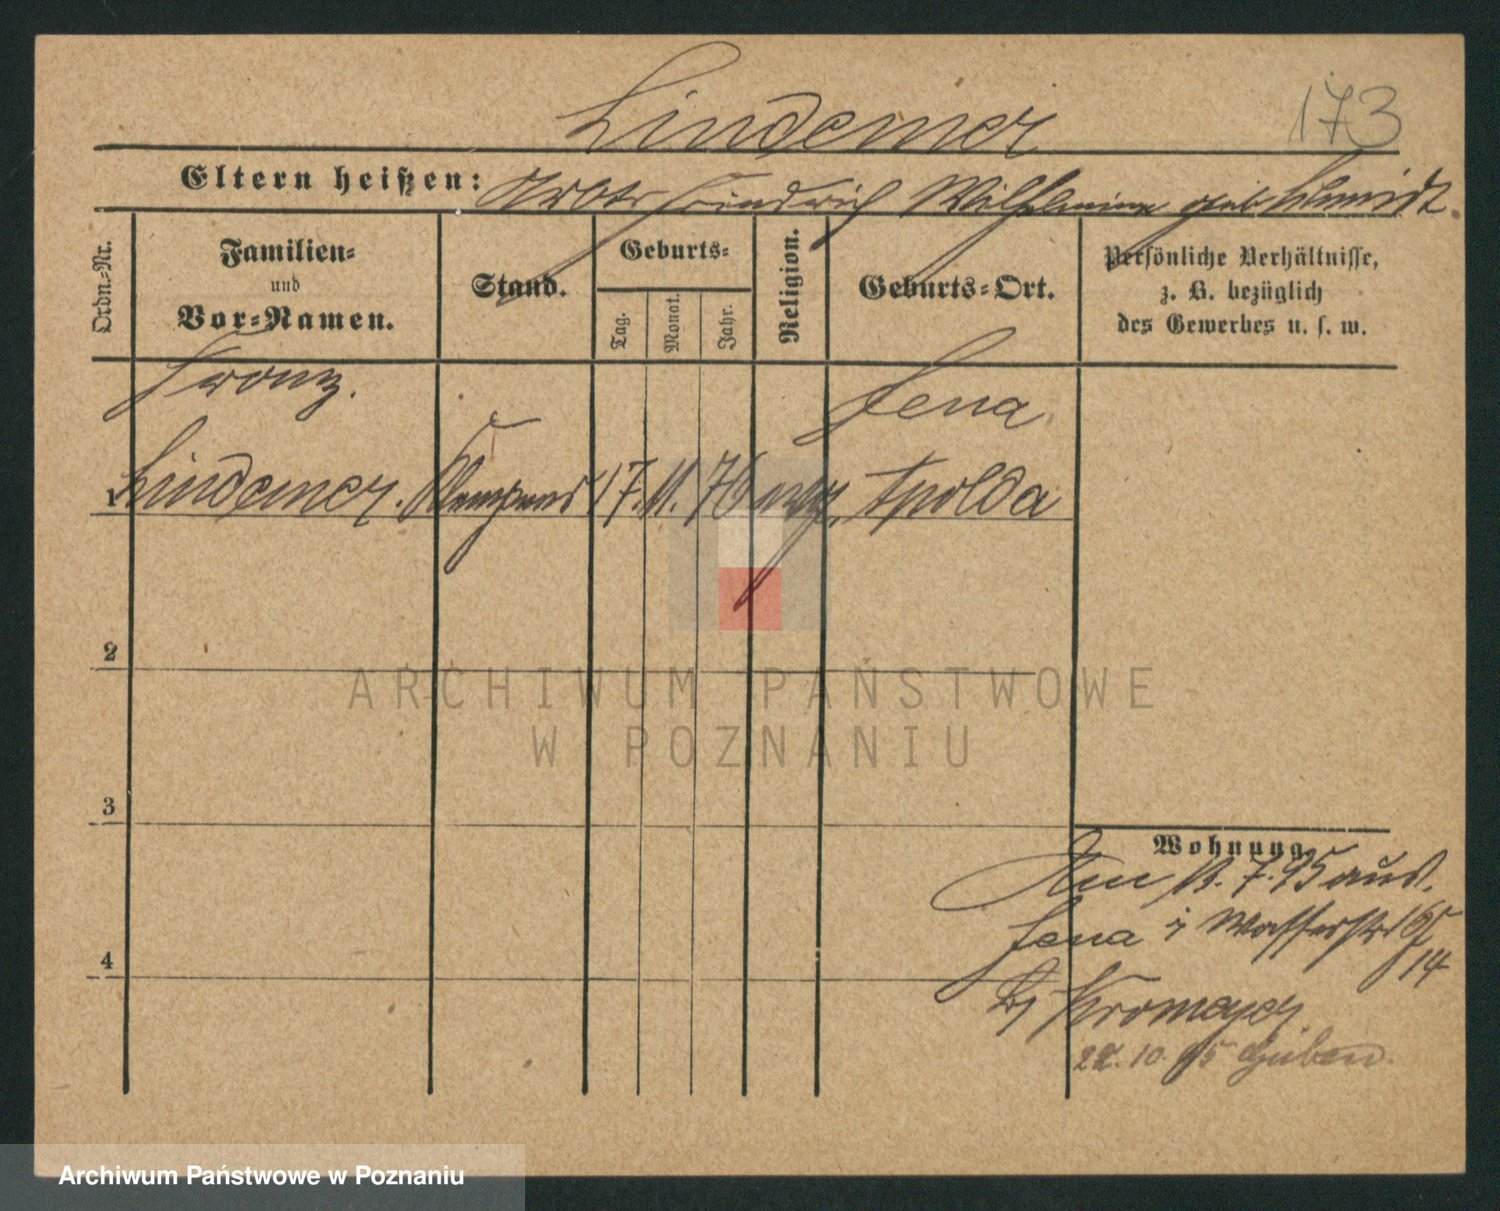 Lindemer
173
Eltern heißen: Friedrich Wilhelmine geb Schmidt
Ordn.-Nr.
Familien-
und
Vor-Namen.
Stand.
Geburts-
Tag.
Monat.
Jahr.
Religion.
Geburts-Ort.
Persönliche Verhältnisse,
z. B. bezüglich
des Gewerbes u. s. w.
Franz. Jena
1 Lindemer. Klempner 17. 11. 76 evg. Apolda
2
3
4
Wohnung
Am 11. 7. 95 aus.
Jena i Wasserstr 16/
14
Kromeyer
22. 10. 95 Guben.
ARCHIWUM PAŃSTWOWE
W POZNANIU
Archiwum Państwowe w Poznaniu